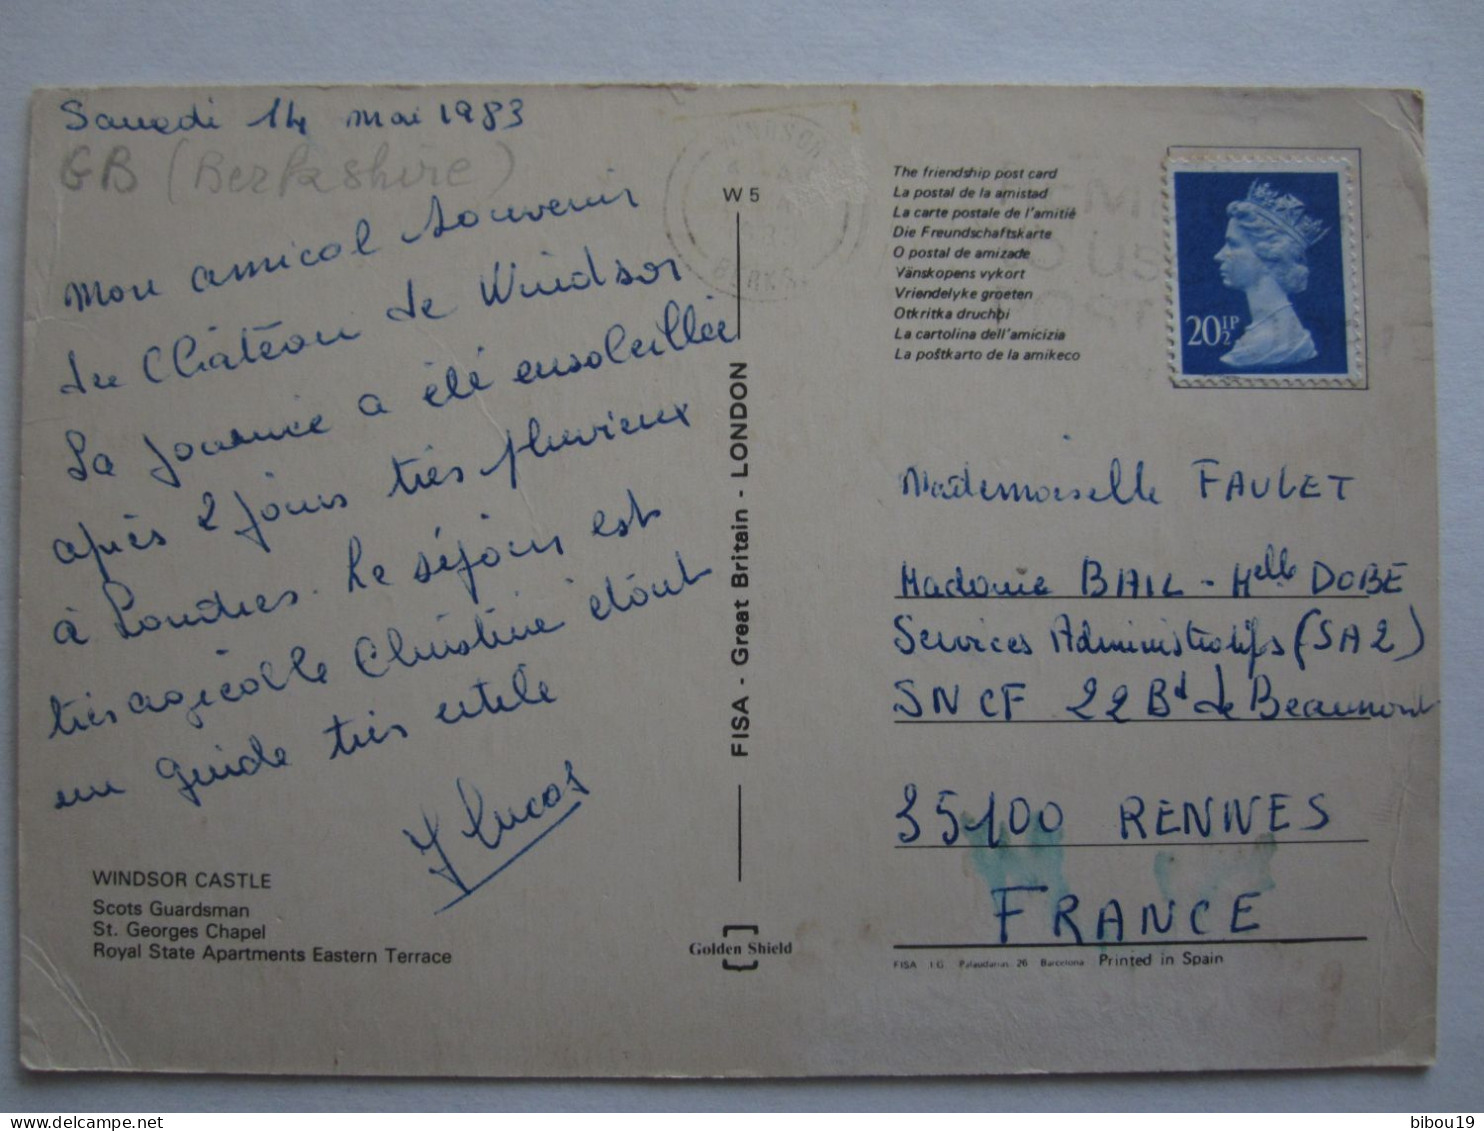 Samedi 14 mai 1983
GB (Berkshire)
Mon amical souvenir
du Château de Windsor
La journée a été ensoleillée
après 2 jours très pluvieux
à Londres. Le séjour est
très agréable Christine étant
un guide très utile
J Lucas
WINDSOR CASTLE
Scots Guardsman
St. Georges Chapel
Royal State Apartments Eastern Terrace
WINDSOR
BERKS.
W 5
FISA - Great Britain - LONDON
Golden Shield
The friendship post card
La postal de la amistad
La carte postale de l'amitié
Die Freundschaftskarte
O postal de amizade
Vänskopens vykort
Vriendelyke groeten
Otkritka druchbi
La cartolina dell'amicizia
La poštkarto de la amikeco
20½P
Mademoiselle FAULET
Madame BAIL - Melle DOBE
Services Administratifs (SA2)
SNCF 22 Bd de Beaumont
35100 RENNES
FRANCE
FISA I.G. Palaudarias, 26 Barcelona Printed in Spain
delcampe.net
bibou19